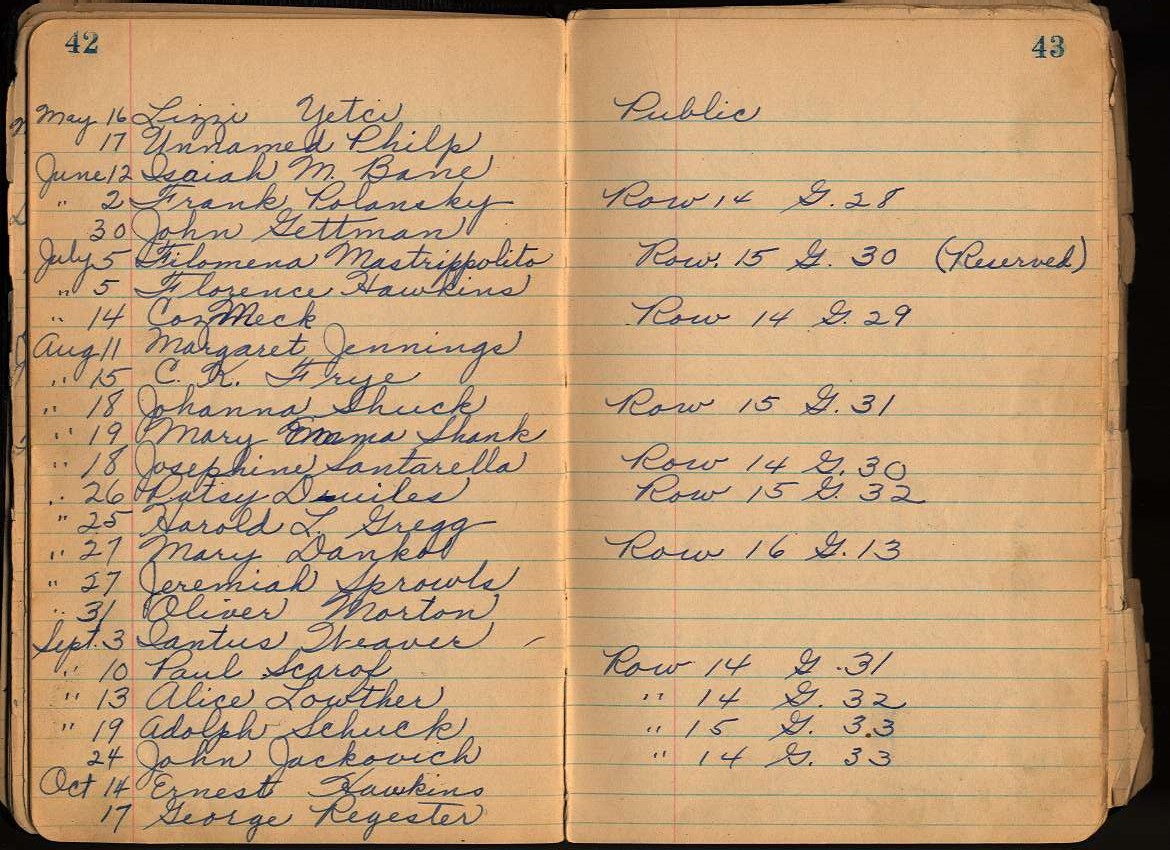 42 43
May 16 Lizzi Yetci Public
17 Unnamed Philp
June 12 Isaiah M. Bane
" 2 Frank Polansky Row 14 G. 28
30 John Gettman
July 5 Filomena Mastrippolito Row. 15 G. 30 (Reserved)
" 5 Florence Hawkins
" 14 Coz Meck Row 14 G. 29
Aug 11 Margaret Jennings
" 15 C. K. Frye
" 18 Johanna Shuck Row 15 G. 31
" 19 Mary Emma Shank
" 18 Josephine Santarella Row 14 G. 30
" 26 Patsy Row 15 G. 32
" 25 Harold L. Gregg
" 27 Mary Danko Row 16 G. 13
" 27 Jeremiah Sprowls
" 31 Oliver Morton
Sept. 3 Weaver
" 10 Paul Scarof Row 14 G. 31
" 13 Alice Lowther " 14 G. 32
" 19 Adolph Schuck " 15 G. 33
24 John Jackovich " 14 G. 33
Oct 14 Ernest Hawkins
17 George Regester